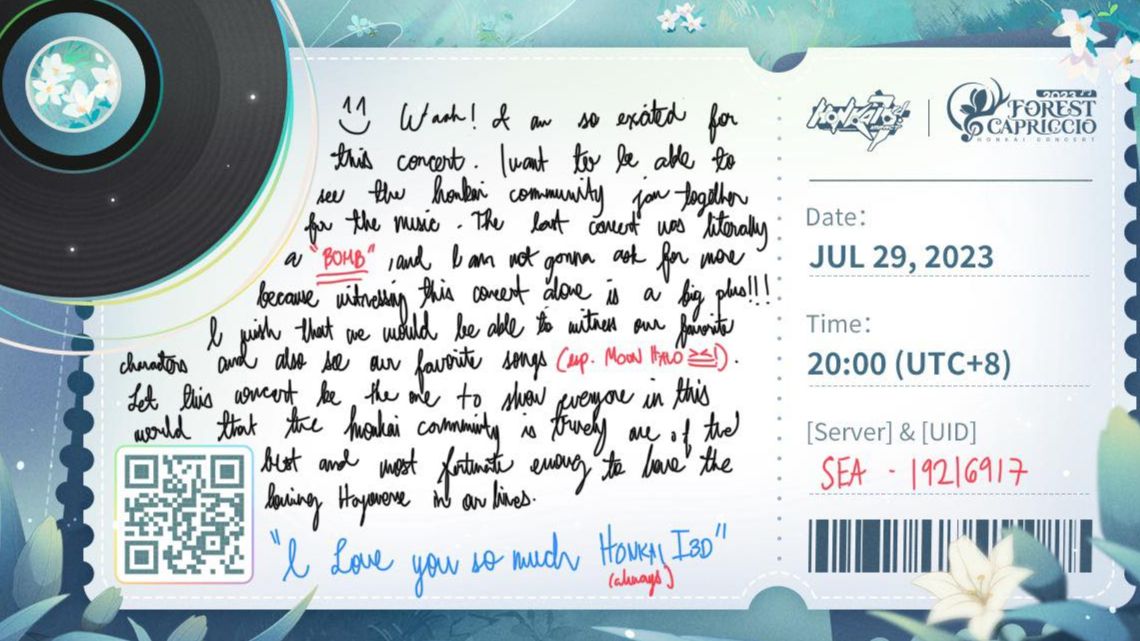 Waah! I am so excited for
this concert. I want to be able to
see the honkai community join together
for the music. The last concert was literally
a "BOMB", and I am not gonna ask for more
because witnessing this concert alone is a big plus!!!
I wish that we would be able to witness our favorite
characters and also see our favorite songs (esp. MOON HALO ≥≤!).
Let this concert be the one to show everyone in this
world that the honkai community is truely one of the
best and most fortunate enough to have the
loving Hoyoverse in our lives.
"I Love you so much HONKAI I3D"
(always)
HONKAI 3
2023
FOREST
CAPRICCIO
HONKAI CONCERT
Date:
JUL 29, 2023
Time:
20:00 (UTC+8)
[Server] & [UID]
SEA - 19216917